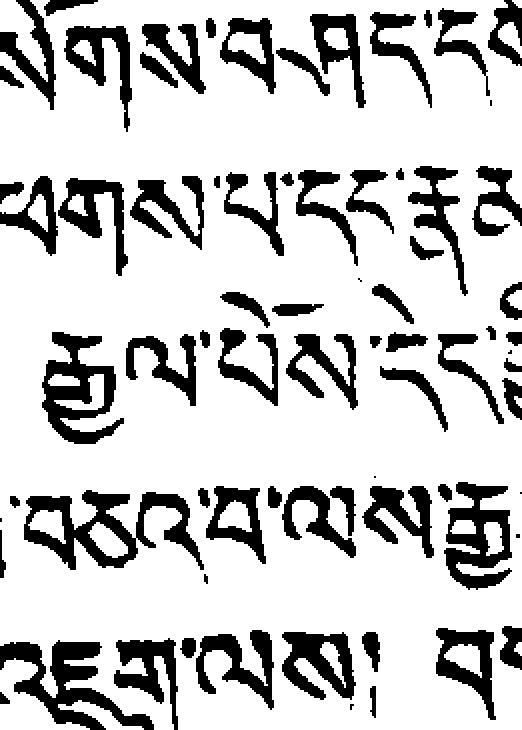 སོགས་བཤད་ད
ཕགས་པ་དང་རྣ
རྒྱལ་པོས་དེད
བཅའ་བ་ལས་རྒྱ
འཇུག་ལས། བད